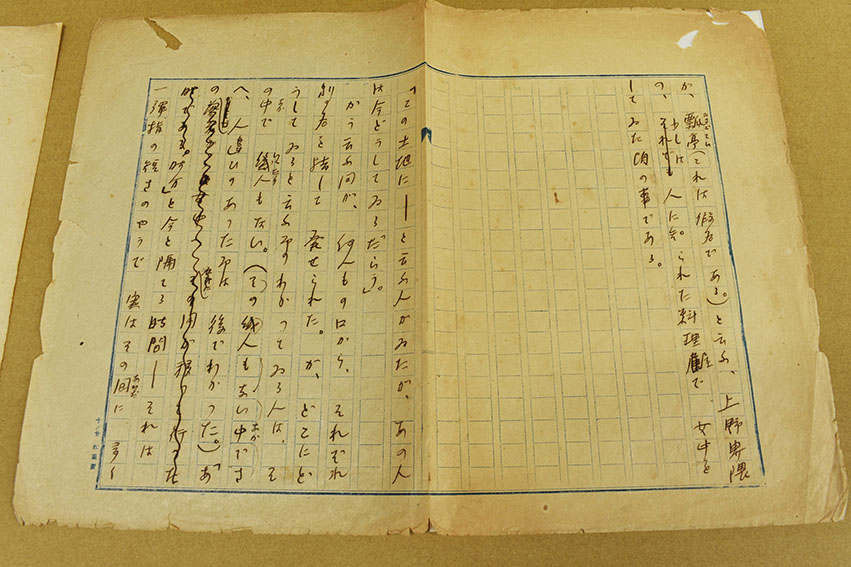 か、瓢亭(これは假名である。)と云ふ、上野界隈
の、少しは人に知られた料理店で 女中を
してゐた頃の事である。
「この土地に――と云ふ人がゐたが、あの人
は今どうしてゐるだらう。」
かう云ふ問が、何人もの口から、それぞれ
別な名を指して 発せられた。が、どこにど
うしてゐると云ふ事のわかつてゐる人は、そ
の中で 幾人もない。(その幾人もない中でさ
へ、人違ひのあつた事は 後でわかつた。)「あ
の
時」と今と隔てる時間――それは
一弾指の短さのやうで 実はその間に 多く